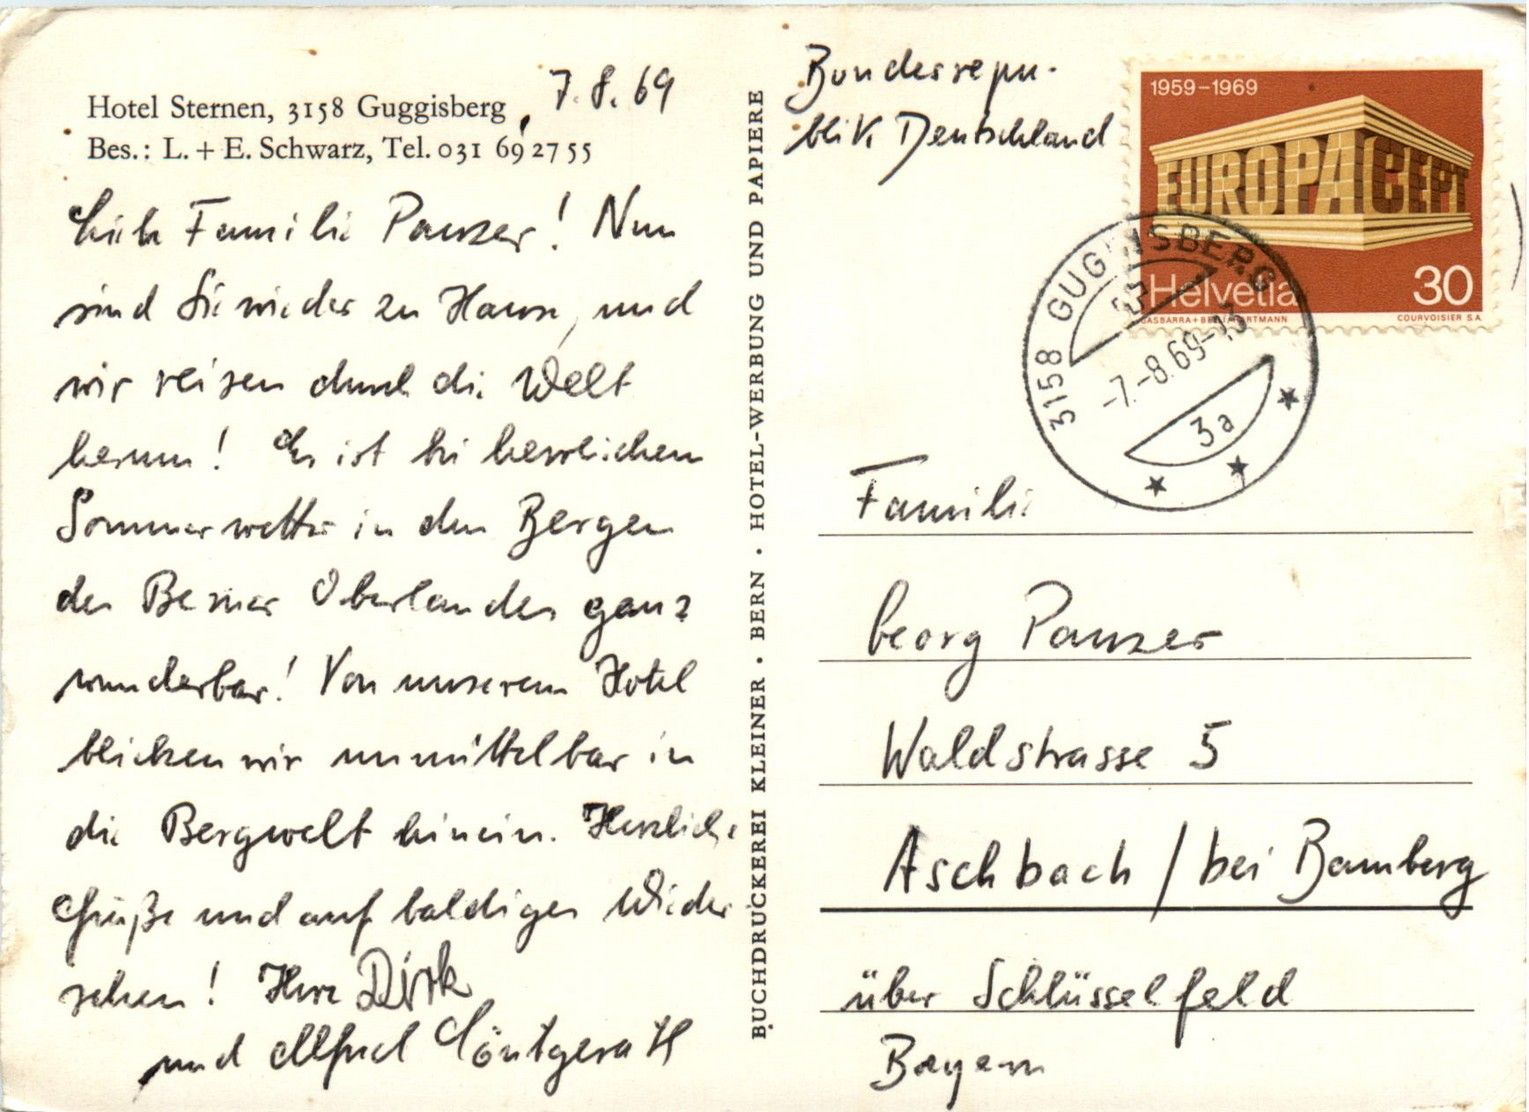 Hotel Sternen, 3158 Guggisberg, 7.8.69
Bes.: L. + E. Schwarz, Tel. 031 69 27 55
Liebe Familie Panzer! Nun
sind Sie wieder zu Hause, und
wir reisen durch die Welt
herum! Es ist bei herrlichem
Sommerwetter in den Bergen
des Berner Oberlandes ganz
wunderbar! Von unserem Hotel
blicken wir unmittelbar in
die Bergwelt hinein. Herzliche
Grüße und auf baldiges Wieder
sehen! Ihre Dirk
und Alfred
BUCHDRUCKEREI KLEINER · BERN · HOTEL-WERBUNG UND PAPIERE
Bundesrepu-
blik Deutschland
1959-1969
EUROPA CEPT
Helvetia 30
GASBARRA+BELLI/HARTMANN COURVOISIER S.A.
3158 GUGGISBERG
-7.-8.69-13
3a
Familie
Georg Panzer
Waldstrasse 5
Aschbach / bei Bamberg
über Schlüsselfeld
Bayern